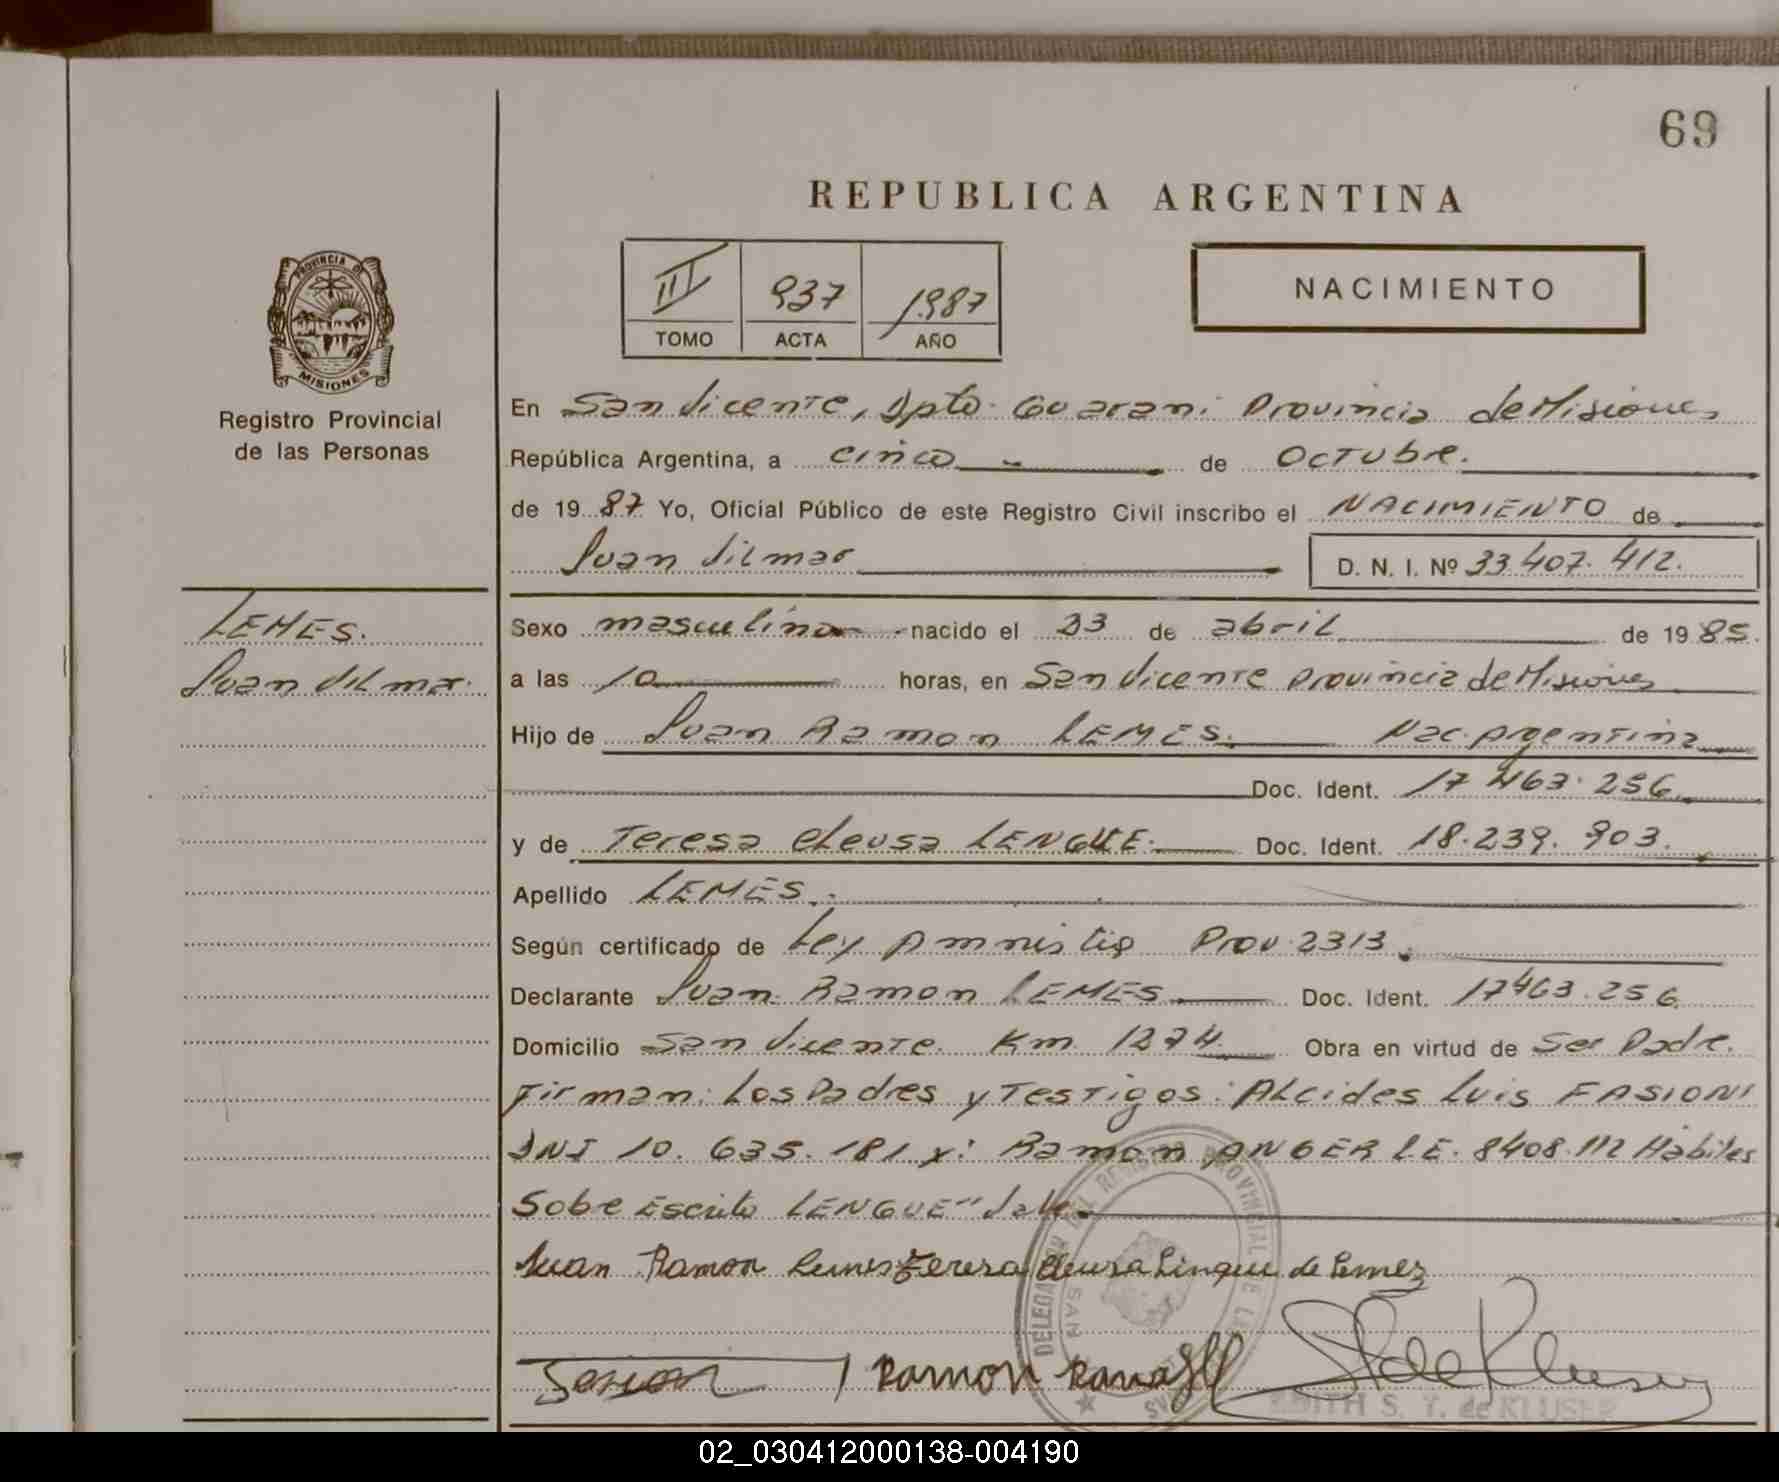 69
REPUBLICA ARGENTINA
III 937 1987
TOMO ACTA AÑO
NACIMIENTO
PROVINCIA DE
MISIONES
Registro Provincial
de las Personas
En San Vicente, Dpto. Guarani Provincia de Misiones
República Argentina, a cinco de Octubre.
de 19 87 Yo, Oficial Público de este Registro Civil inscribo el NACIMIENTO de
Juan Vilmar D. N. I. Nº 33.407.412.
LEMES.
Juan Vilmar.
Sexo masculino nacido el 23 de abril de 19 85.
a las 10 horas, en San Vicente Provincia de Misiones
Hijo de Juan Ramon LEMES. Nac. Argentina
Doc. Ident. 17.463.256
y de Teresa Eleusa LENGUE. Doc. Ident. 18.239.903.
Apellido LEMES.
Según certificado de Ley Amnistia Prov. 2313.
Declarante Juan Ramon LEMES Doc. Ident. 17463.256
Domicilio San Vicente. Km 1274. Obra en virtud de Ser Padre.
Firman: Los Padres y Testigos: Alcides Luis FASIONI
DNI 10.635.181 y: Ramon ANGER L.E. 8408.112 Hábiles
Sobre Escrito LENGUE" Vale.
Juan Ramon Lemes Teresa Eleusa Lingue de Lemez
Ramon
EDITH S. T. de KLUSER
02_030412000138-004190